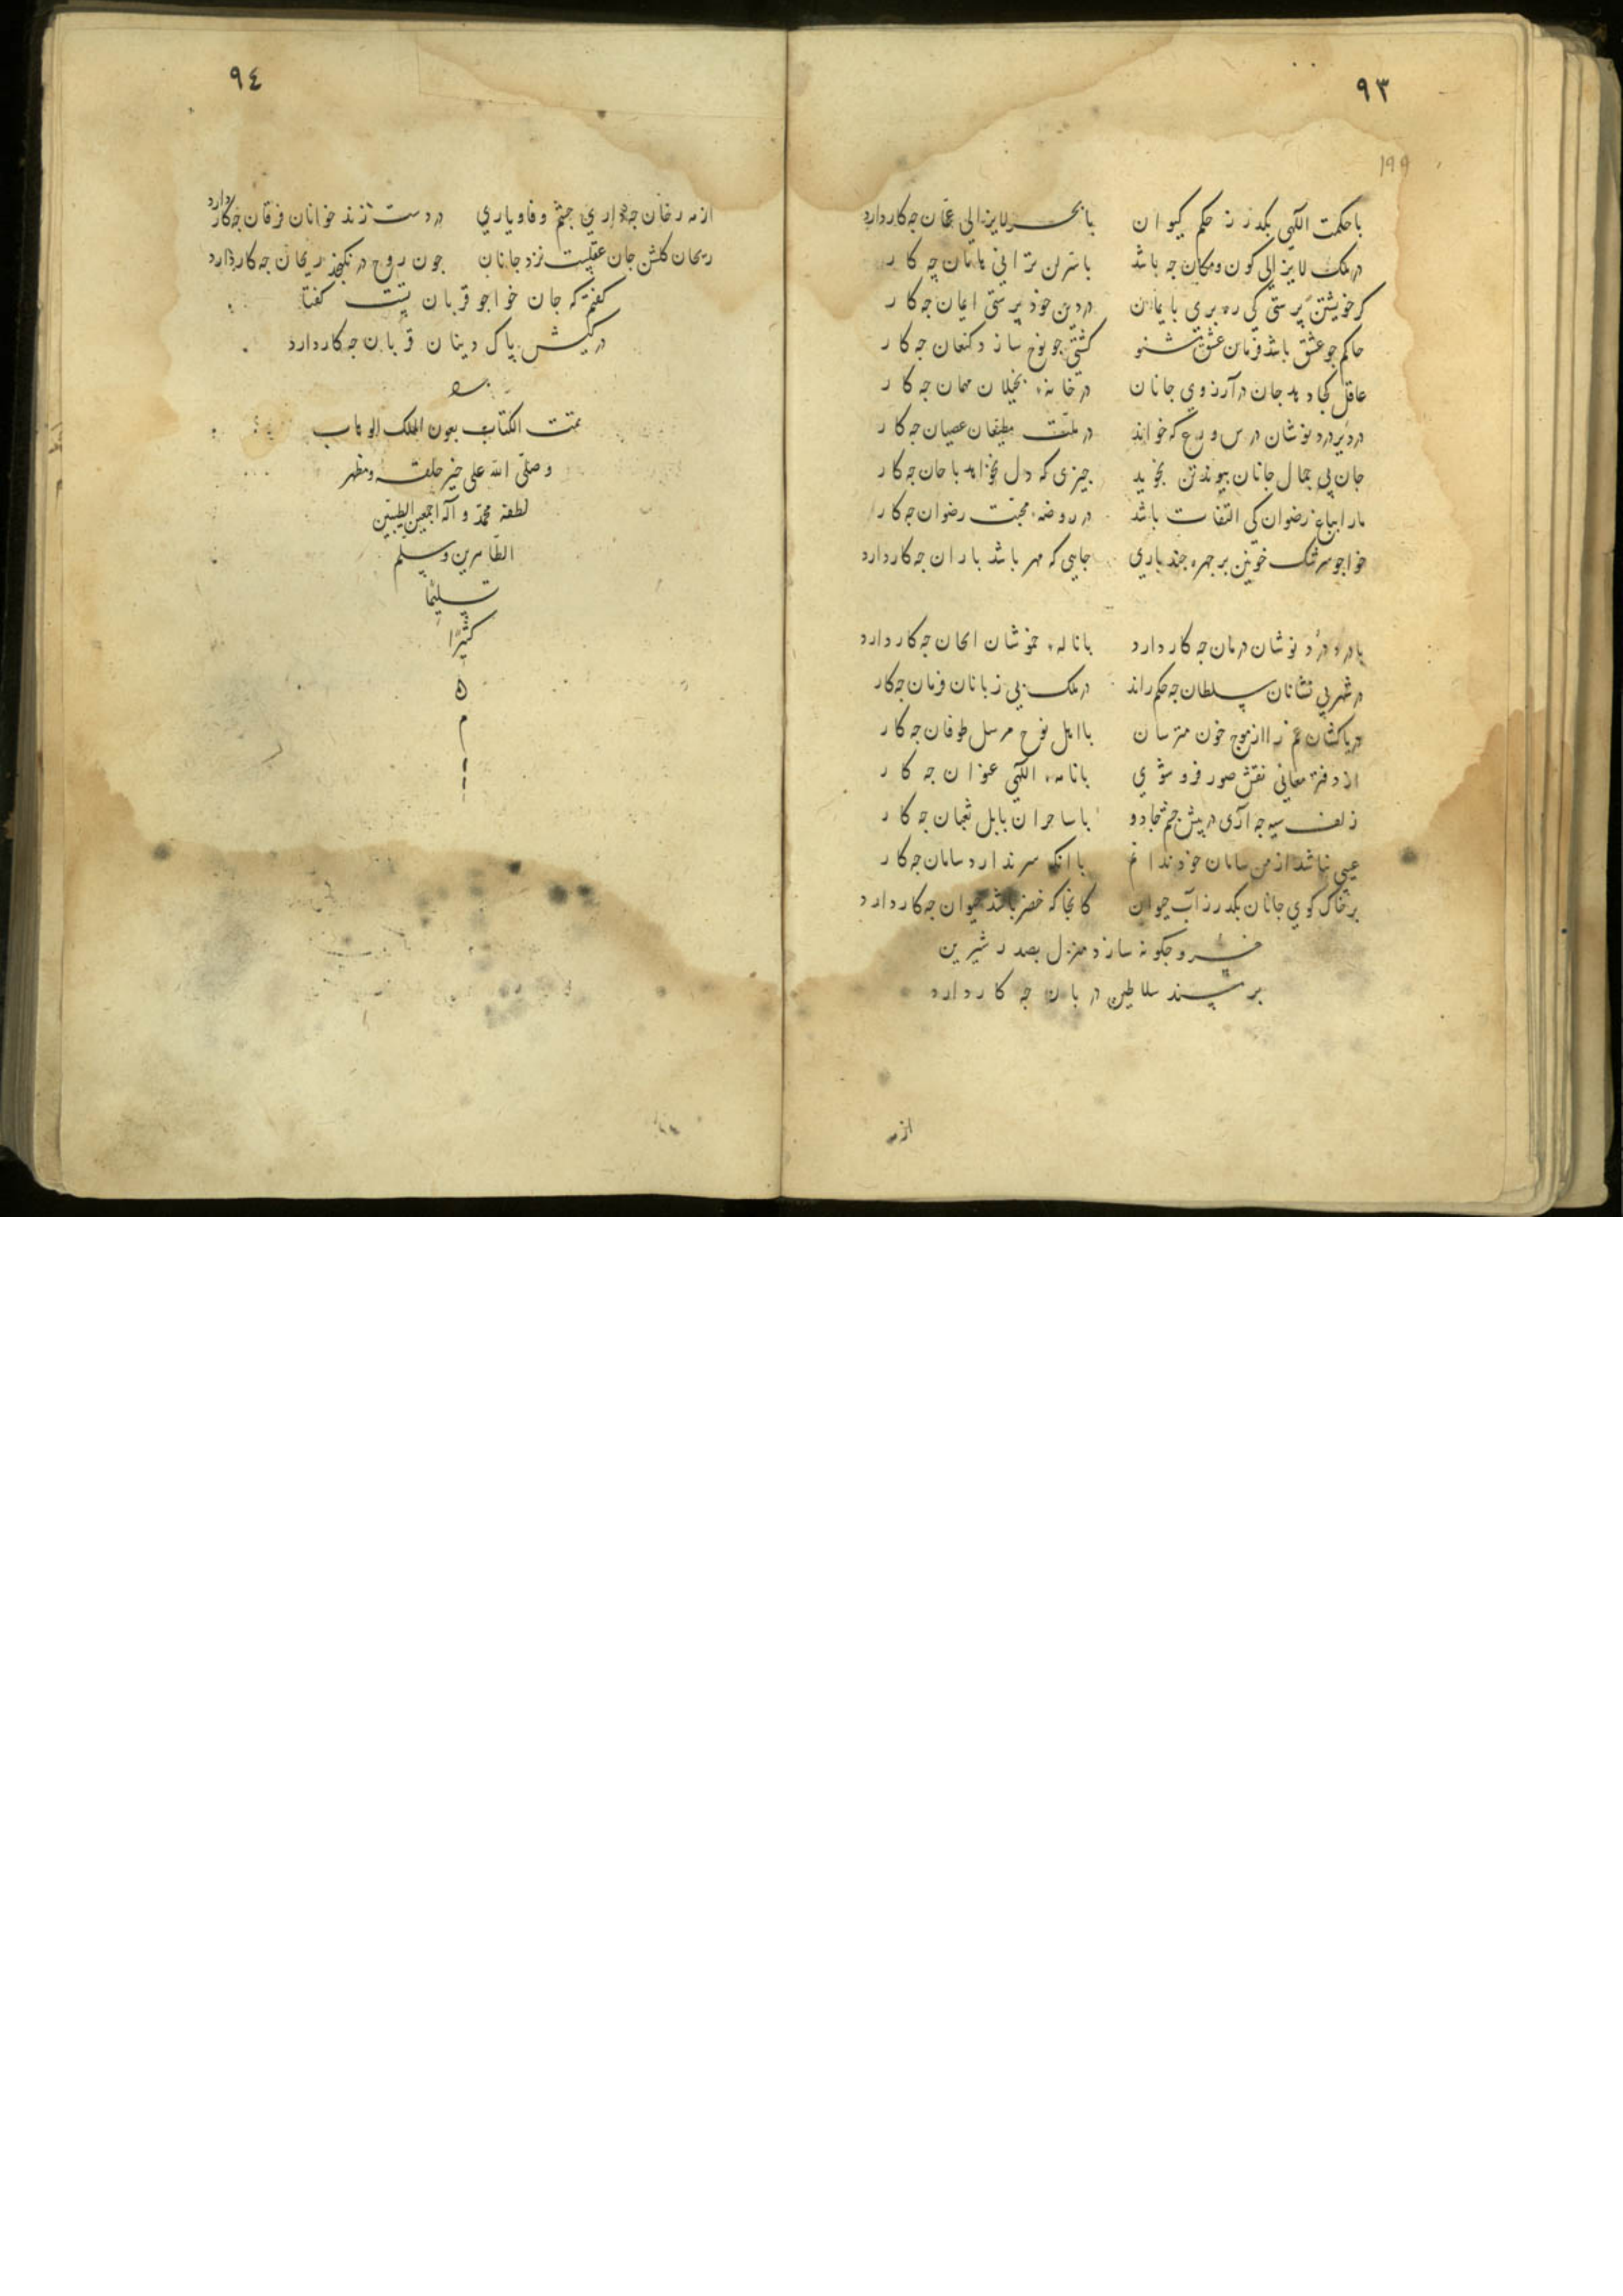 ٩٣
١٩٩
با حکمت الهی بگذر ز حکم کیوان با بحر لایزالی عمّان چه کار دارد
در ملک لایزالی کون و مکان چه باشد با سرّ لن ترانی هامان چه کار
گر خویشتن پرستی کی ره بری بایمان در دین خود پرستی ایمان چه کار
حاکم چو عشق باشد فرمان عشق بشنو کشتی چو نوح سازد کنعان چه کار
عاقل کجا دهد جان در آرزوی جانان در خانه بخیلان مهمان چه کار
در دیر درد نوشان درس ورع که خواند در ملّت مطیعان عصیان چه کار
جان بی جمال جانان پیوند تن نجوید چیزی که دل نخواهد با جان چه کار
ما را بباغ رضوان کی التفات باشد در روضه محبت رضوان چه کار
خواجو سرشک خونین بر چهره چند باری جایی که مهر باشد باران چه کار دارد
با درد درد نوشان درمان چه کار دارد با ناله خموشان الحان چه کار دارد
در شهر بی نشانان سلطان چه حکم راند در ملک بی زبانان فرمان چه کار
دریاکشان غم را از موج خون مترسان با اهل نوح مرسل طوفان چه کار
از دفتر معانی نقش صور فرو شوی با نامه الهی عنوان چه کار
زلف سیه چه آری در پیش چشم جادو با ساحران بابل ثعبان چه کار
عیبی نباشد از من سامان خود ندانم با انک سر ندارد سامان چه کار
بر خاک کوی جانان بگذر ز آب حیوان کانجا که خضر باشد حیوان چه کار دارد
خسرو چگونه سازد منزل بصدر شیرین
بر مسند سلاطین دربان چه کار دارد
از مه
٩٤
از مه رخان چه داری چشم وفا و یاری در دست زند خوانان فرقان چه کار دارد
ریحان گلشن جان عقلیست نزد جانان چون روح در نگنجد ریحان چه کار دارد
گفتم که جان خواجو قربان تست گفتا
در کیش پاک دینان قربان چه کار دارد
تمّت الکتاب بعون الملک الوهاب
و صلّی الله علی خیر خلقه و مظهر
لطفه محمّد و آله اجمعین الطیبین
الطّاهرین و سلم
تسلیمًا
کثیرًا
ه
م